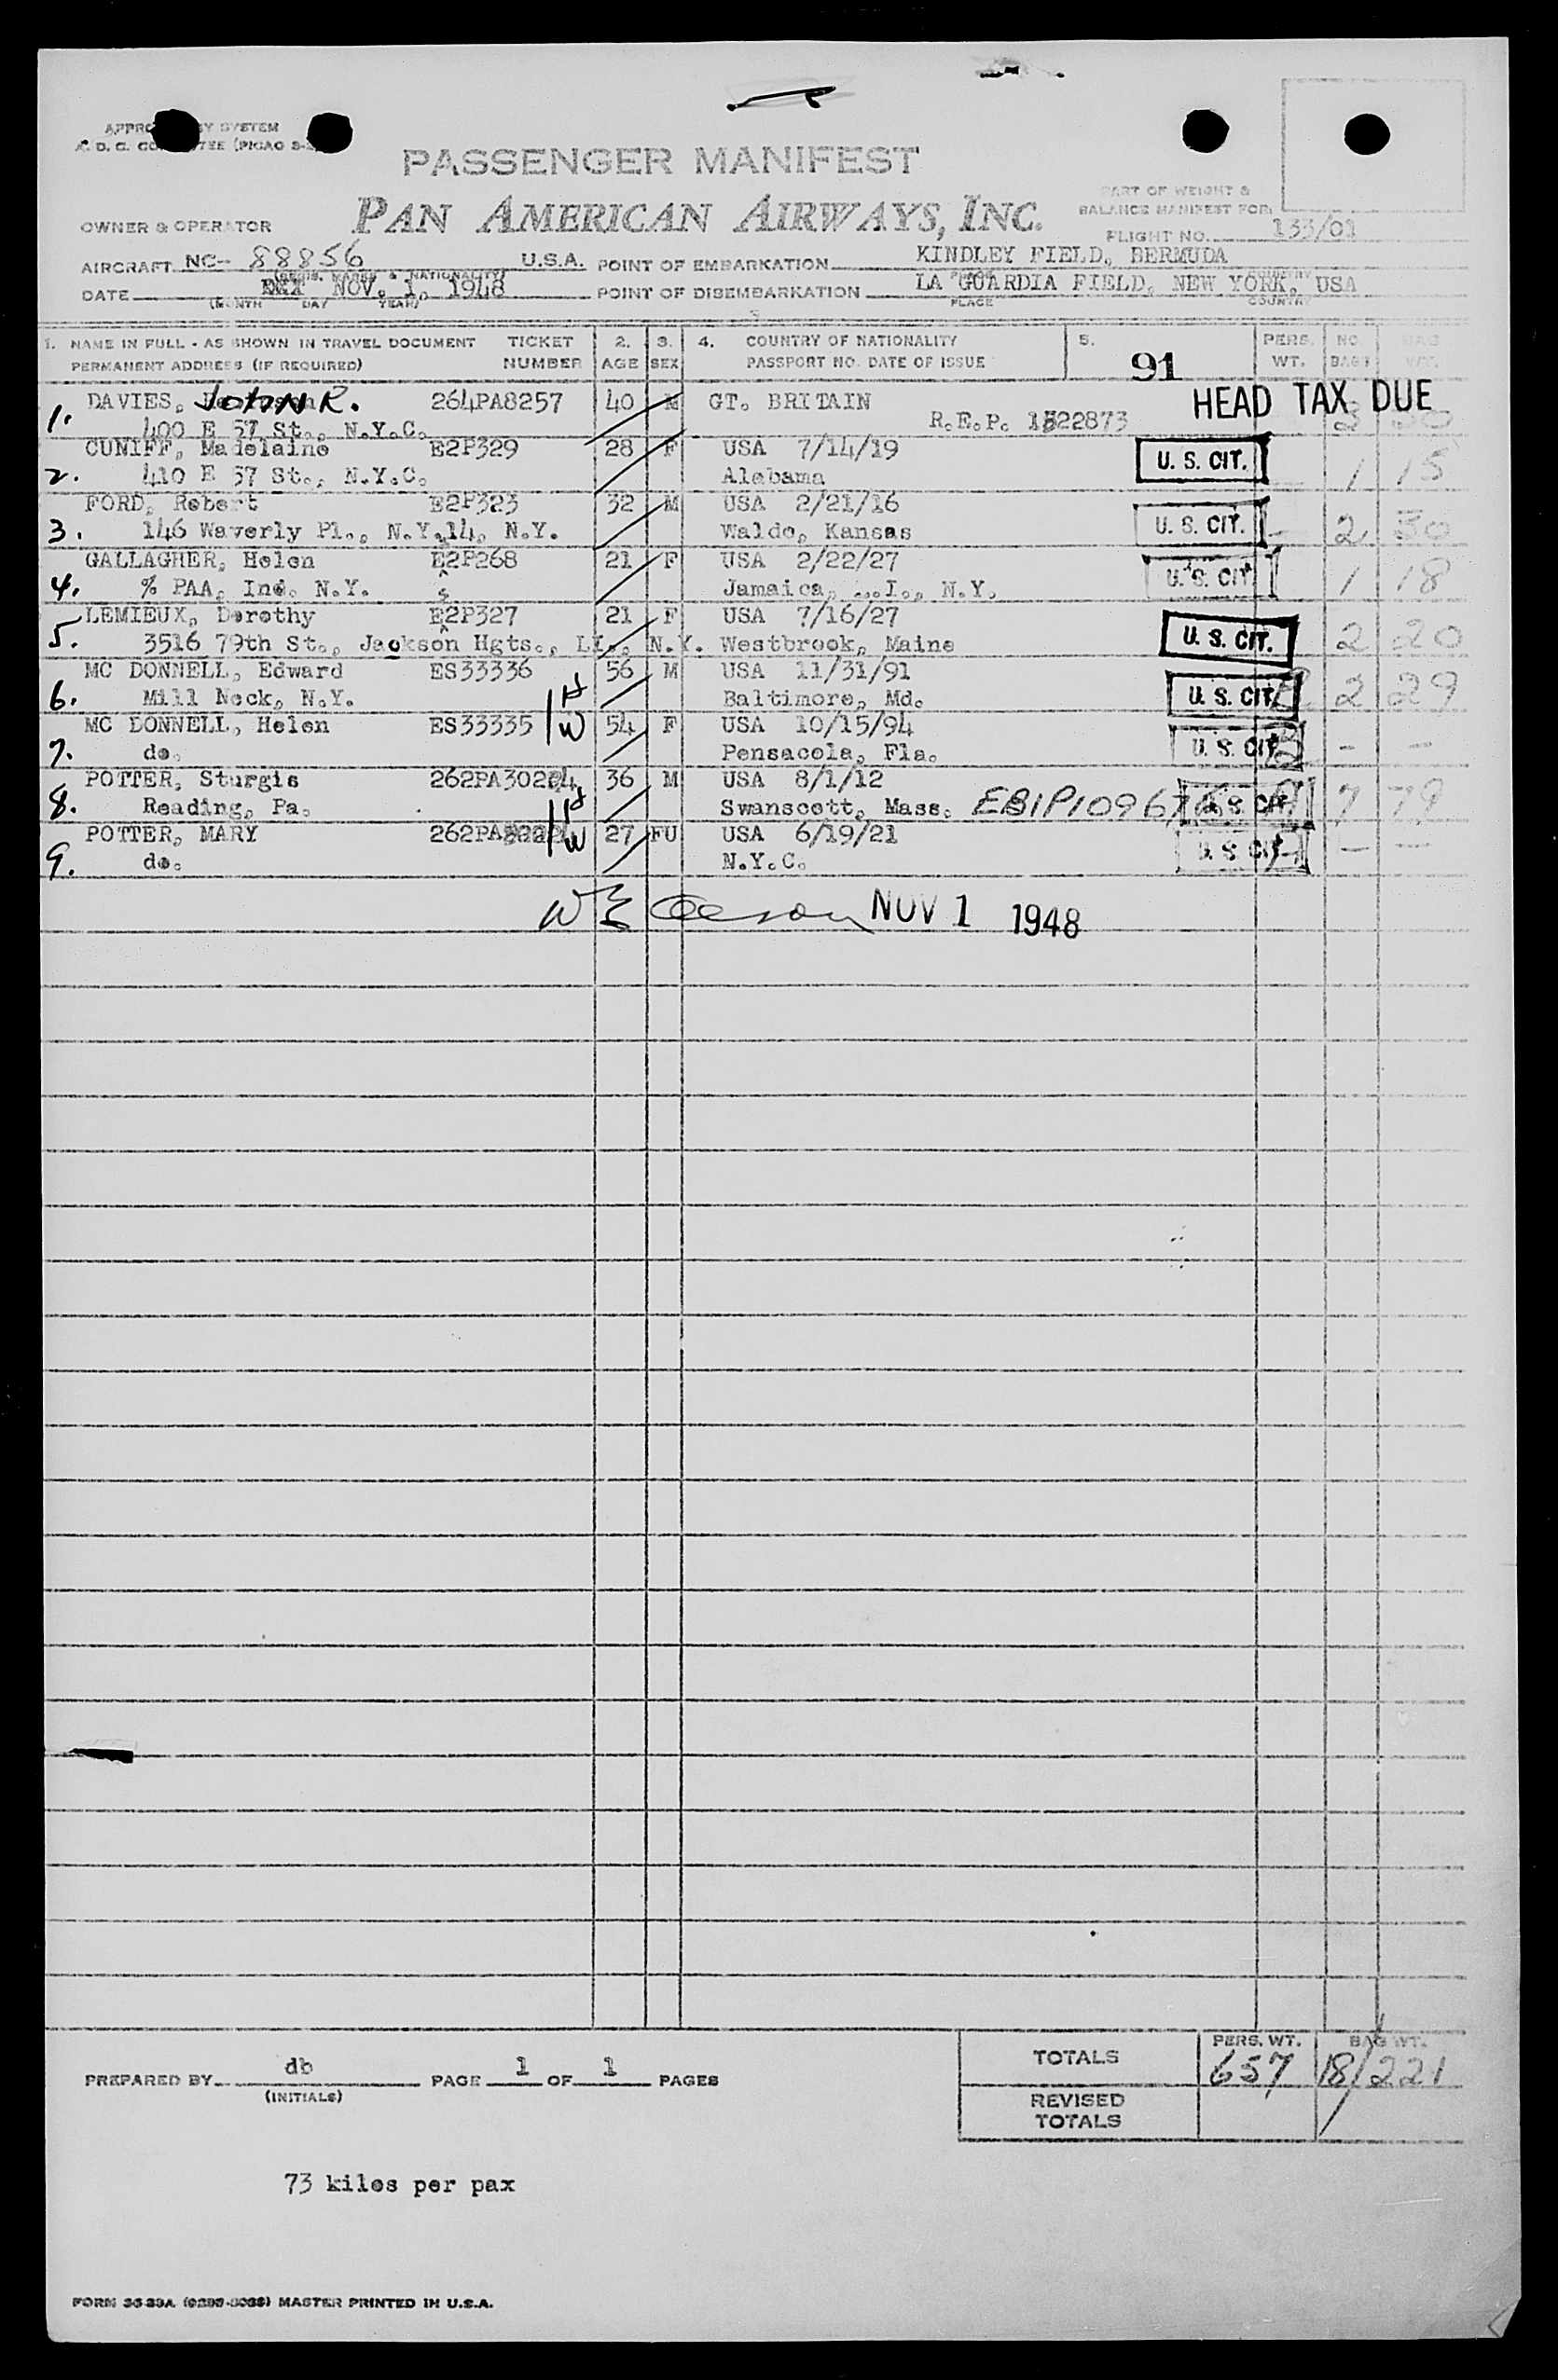 PASSENGER MANIFEST
PAN AMERICAN AIRWAYS, INC.
PART OF WEIGHT &
BALANCE MANIFEST FOR:
FLIGHT NO. 133/01
OWNER & OPERATOR
AIRCRAFT NC- 88856 U.S.A. POINT OF EMBARKATION KINDLEY FIELD, BERMUDA
(REGIS. MARKS & NATIONALITY) PLACE COUNTRY
DATE NOV. 1, 1948 POINT OF DISEMBARKATION LA GUARDIA FIELD, NEW YORK, USA
(MONTH DAY YEAR) PLACE COUNTRY
1. NAME IN FULL - AS SHOWN IN TRAVEL DOCUMENT TICKET 2. 3. 4. COUNTRY OF NATIONALITY 5. PERS. NO. BAG
PERMANENT ADDRESS (IF REQUIRED) NUMBER AGE SEX PASSPORT NO. DATE OF ISSUE 91 WT. BAGS WT.
1. DAVIES, JOHN R. 264PA8257 40 M GT. BRITAIN HEAD TAX DUE
400 E 57 St., N.Y.C. R.E.P. 1322873
CUNIFF, Madelaine E2P329 28 F USA 7/14/19 U. S. CIT. 1 15
2. 410 E 57 St., N.Y.C. Alabama
FORD, Robert E2P323 32 M USA 2/21/16 U. S. CIT. 2 30
3. 146 Waverly Pl., N.Y.14, N.Y. Waldo, Kansas
GALLAGHER, Helen E2P268 21 F USA 2/22/27 U. S. CIT. 1 18
4. % PAA, Inc. N.Y. S Jamaica, I., N.Y.
LEMIEUX, Dorothy E2P327 21 F USA 7/16/27 U. S. CIT. 2 20
5. 3516 79th St., Jackson Hgts., LI., N.Y. Westbrook, Maine
MC DONNELL, Edward ES33336 56 M USA 11/31/91 U. S. CIT. 2 29
6. Mill Neck, N.Y. H Baltimore, Md.
MC DONNELL, Helen ES33335 W 54 F USA 10/15/94 U. S. CIT. - -
7. do. Pensacola, Fla.
POTTER, Sturgis 36 M USA 8/1/12 7 79
8. Reading, Pa. H Swanscott, Mass. U. S. CIT.
POTTER, MARY W 27 FU USA 6/19/21 U. S. CIT. - -
9. do. N.Y.C.
NOV 1 1948
TOTALS PERS. WT. 657 BAG WT. 18/221
REVISED TOTALS
PREPARED BY db PAGE 1 OF 1 PAGES
(INITIALS)
73 kilos per pax
MASTER PRINTED IN U.S.A.